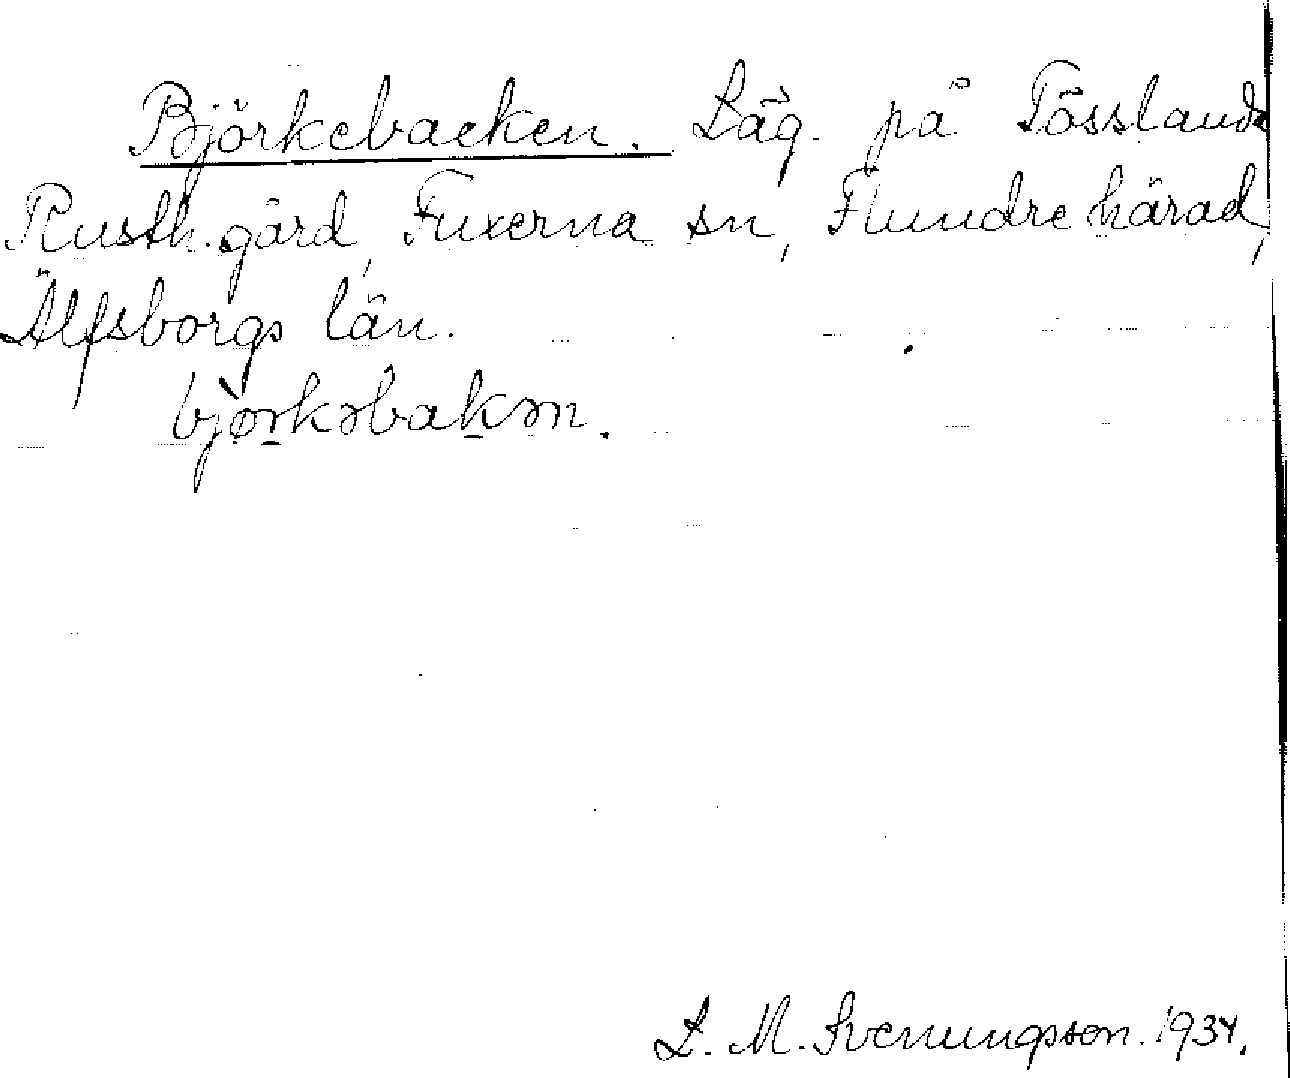 Björkebacken. Läg. på Tösslands
Rusth.gård, Fuxerna sn, Flundre härad,
Älfsborgs län.
bjørkəbakən.
L. M. Svenungsson. 1934.